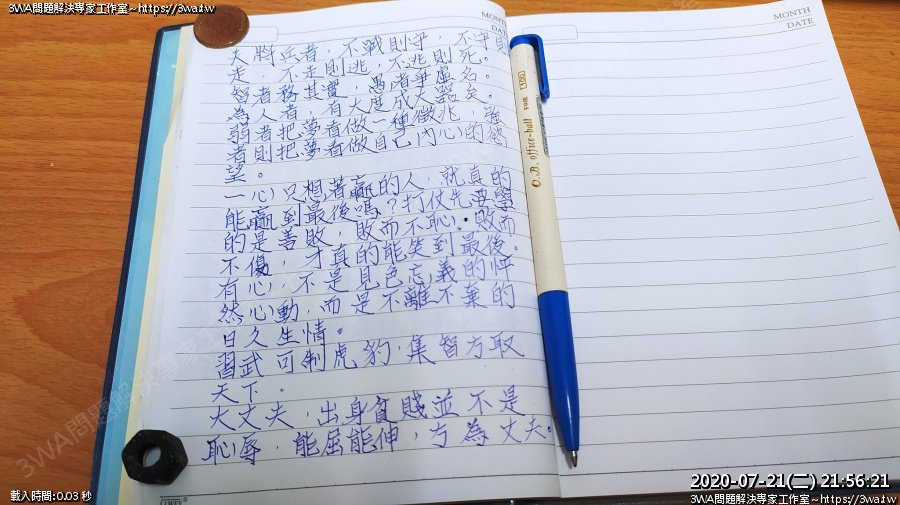 3WA問題解決專家工作室~https://3wa.tw
MONTH
DATE
MONTH
DATE
夫將兵者,不戰則守,不守則
走,不走則逃,不逃則死。
智者務其實,愚者爭虛名。
為人者,有大度成大器矣。
弱者把夢看做一種徵兆,強
者則把夢看做自己內心的慾
望。
一心只想著贏的人,就真的
能贏到最後嗎?打仗先要學
的是善敗,敗而不恥,敗而
不傷,才真的能笑到最後。
有心,不是見色忘義的怦
然心動,而是不離不棄的
日久生情。
習武可制虎豹,集智方取
天下。
大丈夫,出身貧賤並不是
恥辱,能屈能伸,方為丈夫。
O.B. office-ball
3WA問題解決專家工作室
載入時間:0.03 秒
2020-07-21(二) 21:56:21
3WA問題解決專家工作室~https://3wa.tw